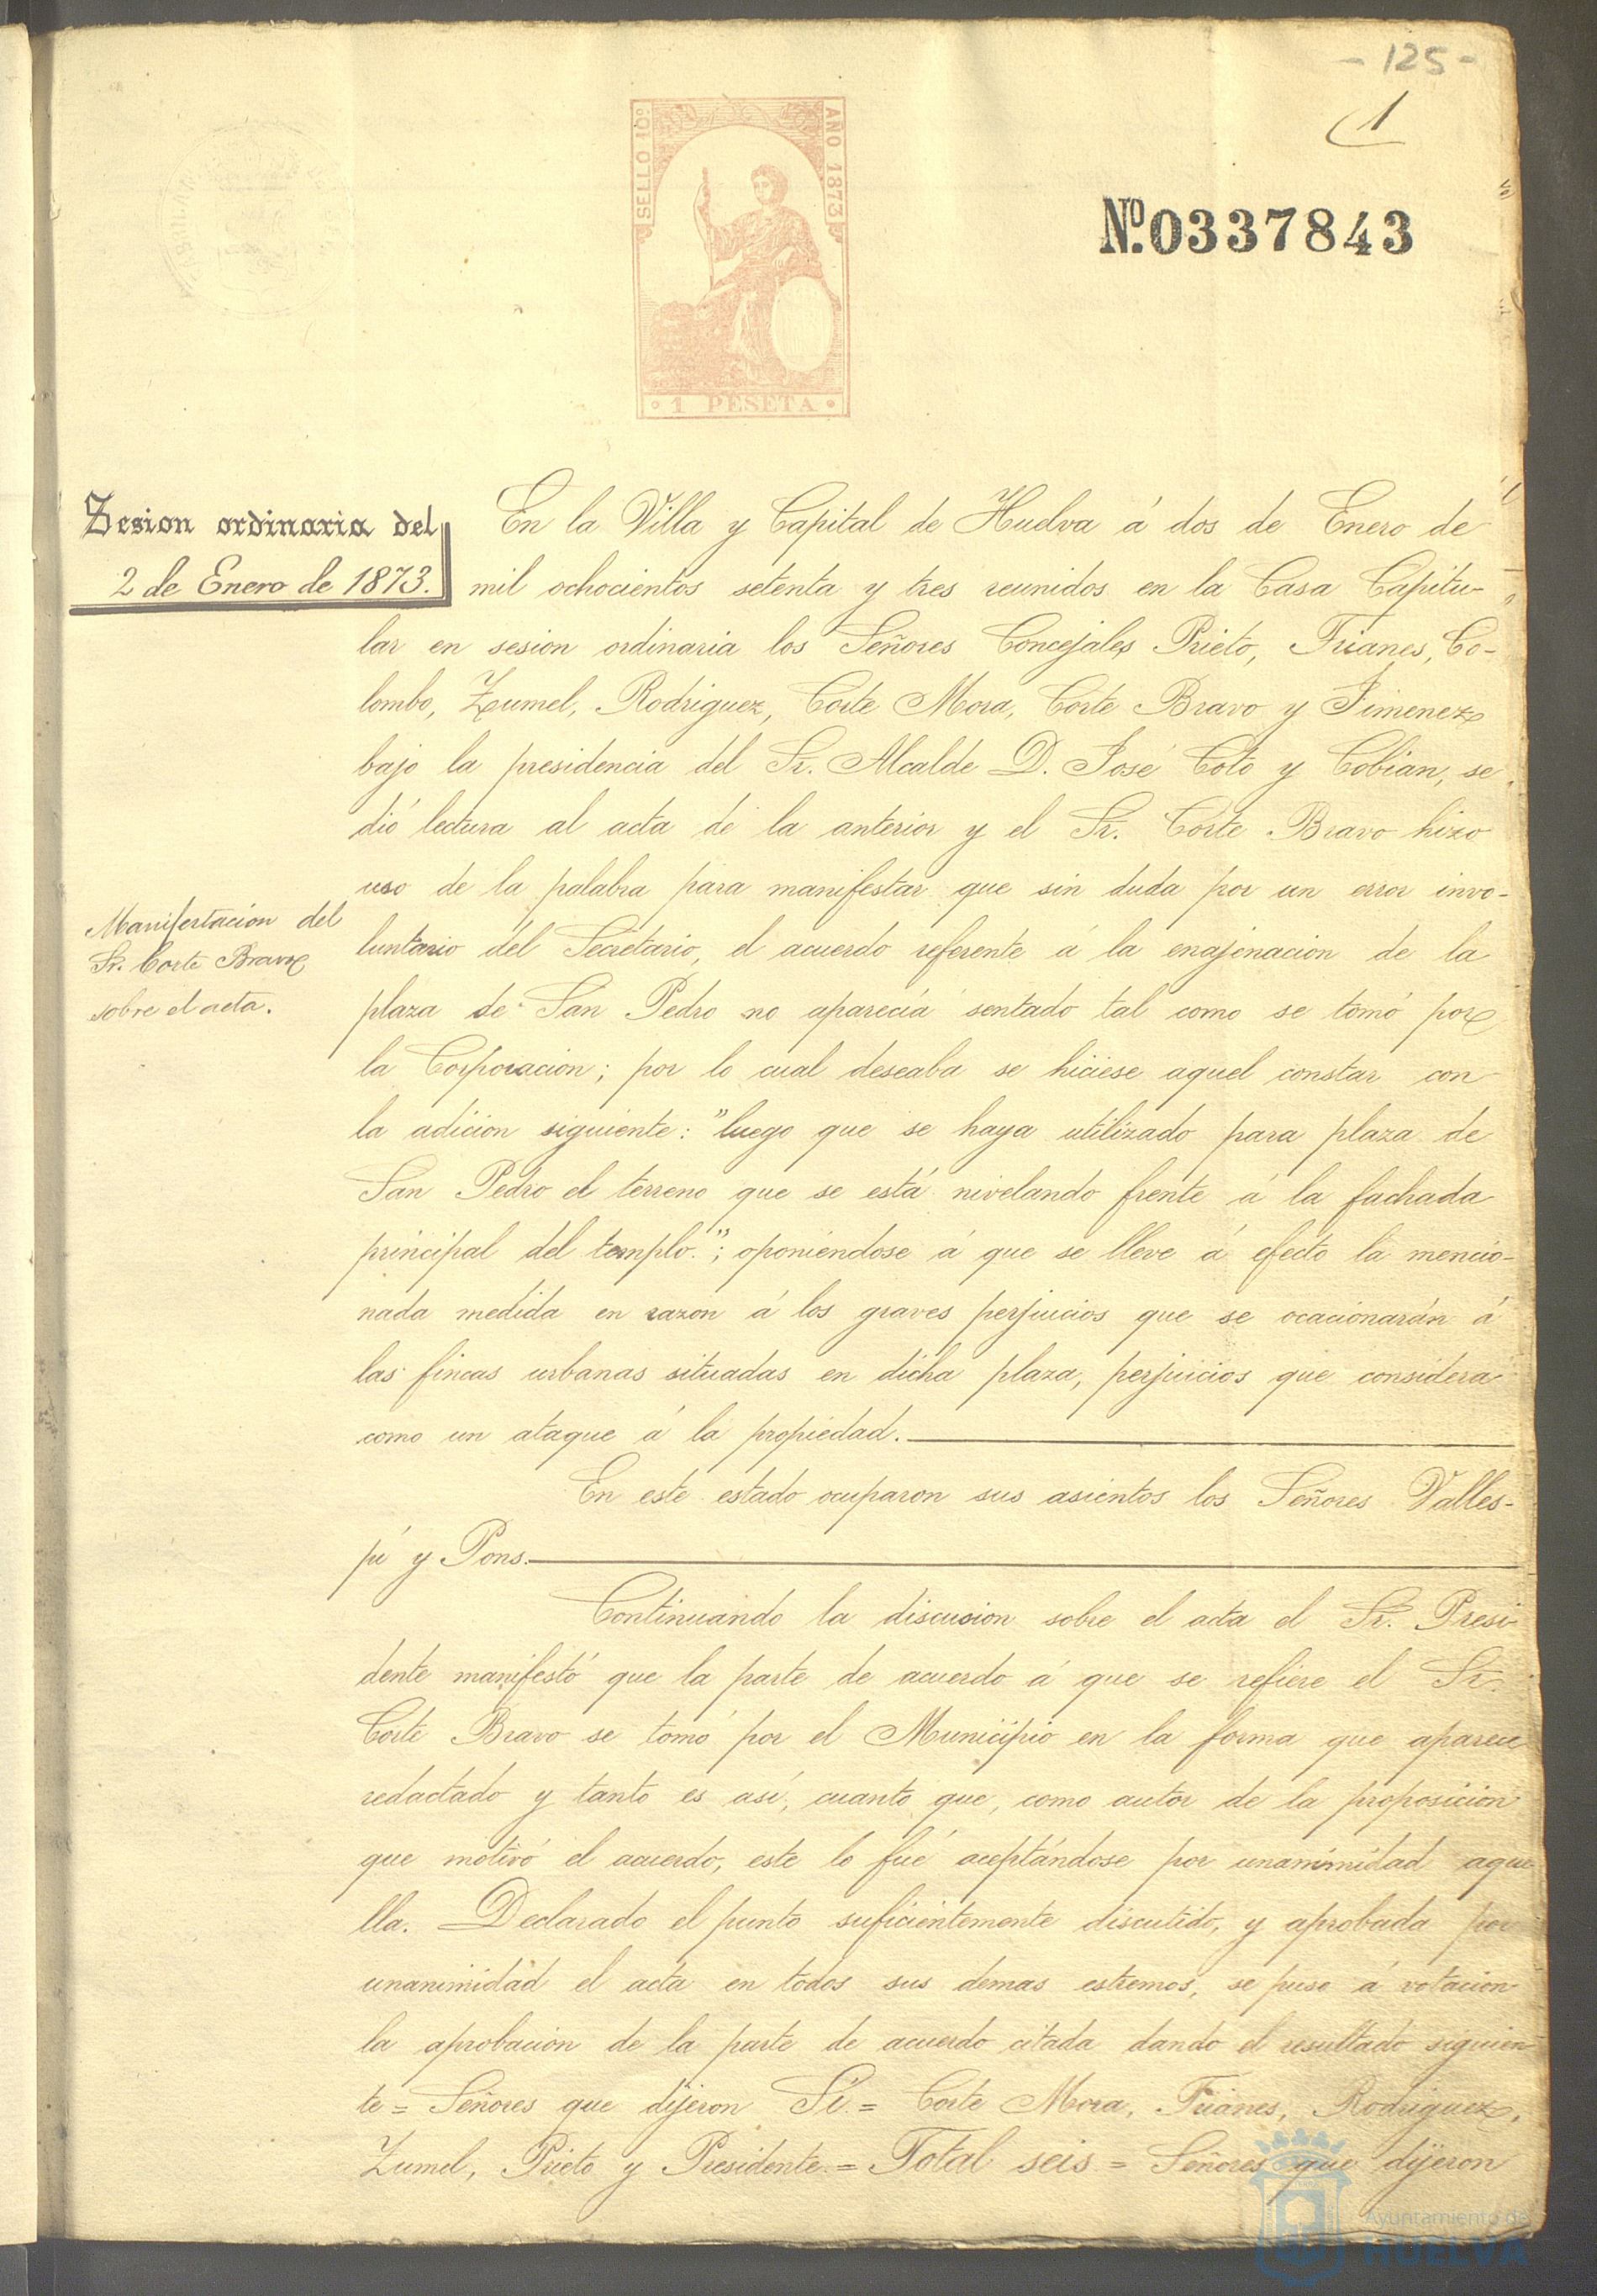 - 125 -
1
SELLO 10º
AÑO 1873
1 PESETA
Nº. 0337843
Sesion ordinaria del
2 de Enero de 1873.
En la Villa y Capital de Huelva á dos de Enero de
mil ochocientos setenta y tres reunidos en la Casa Capitu-
lar en sesion ordinaria los Señores Concejales Prieto, Trianes, Co-
lombo, Zumel, Rodriguez, Corte Mora, Corte Bravo y Jimenez
bajo la presidencia del Sr. Alcalde D. José Coto y Cobian, se
dió lectura al acta de la anterior y el Sr. Corte Bravo hizo
uso de la palabra para manifestar que sin duda por un error invo-
luntario del Secretario, el acuerdo referente á la enajenacion de la
plaza de San Pedro no aparecía sentado tal como se tomó por
la Corporacion; por lo cual deseaba se hiciese aquel constar con
la adicion siguiente: "luego que se haya utilizado para plaza de
San Pedro el terreno que se está nivelando frente á la fachada
principal del templo."; oponiéndose á que se lleve á efecto la mencio-
nada medida en razon á los graves perjuicios que se ocacionarán á
las fincas urbanas situadas en dicha plaza, perjuicios que considera
como un ataque á la propiedad.
Manifestacion del
Sr. Corte Bravo
sobre el acta.
En este estado ocuparon sus asientos los Señores Valles-
pí y Pons.
Continuando la discusion sobre el acta el Sr. Presi-
dente manifestó que la parte de acuerdo á que se refiere el Sr.
Corte Bravo se tomó por el Municipio en la forma que aparece
redactado y tanto es así, cuanto que, como autor de la proposicion
que motivó el acuerdo, este lo fué aceptándose por unanimidad aque
lla. Declarado el punto suficientemente discutido, y aprobada por
unanimidad el acta en todos sus demas estremos, se puso á votacion
la aprobacion de la parte de acuerdo citada dando el resultado siguien
te = Señores que dijeron Si = Corte Mora, Trianes, Rodriguez,
Zumel, Prieto y Presidente. = Total seis = Señores que dijeron
Ayuntamiento de
HUELVA